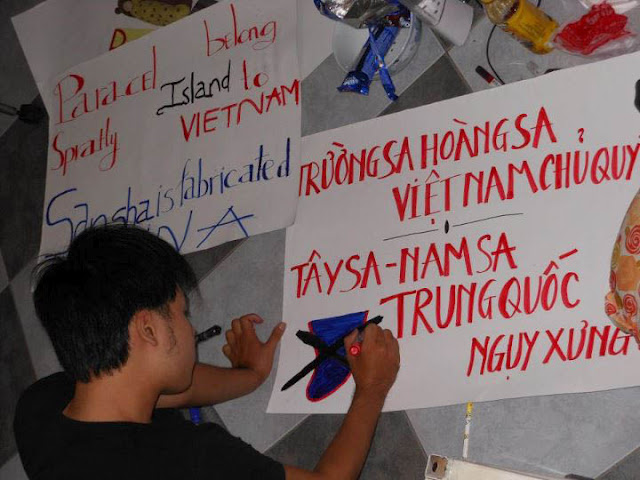 Paracel belong
Spratly Island to
VIETNAM
Sansha is fabricated
NA
TRƯỜNG SA HOÀNG SA
VIỆT NAM CHỦ QUY
TÂY SA - NAM SA
TRUNG QUỐC
NGỤY XƯNG